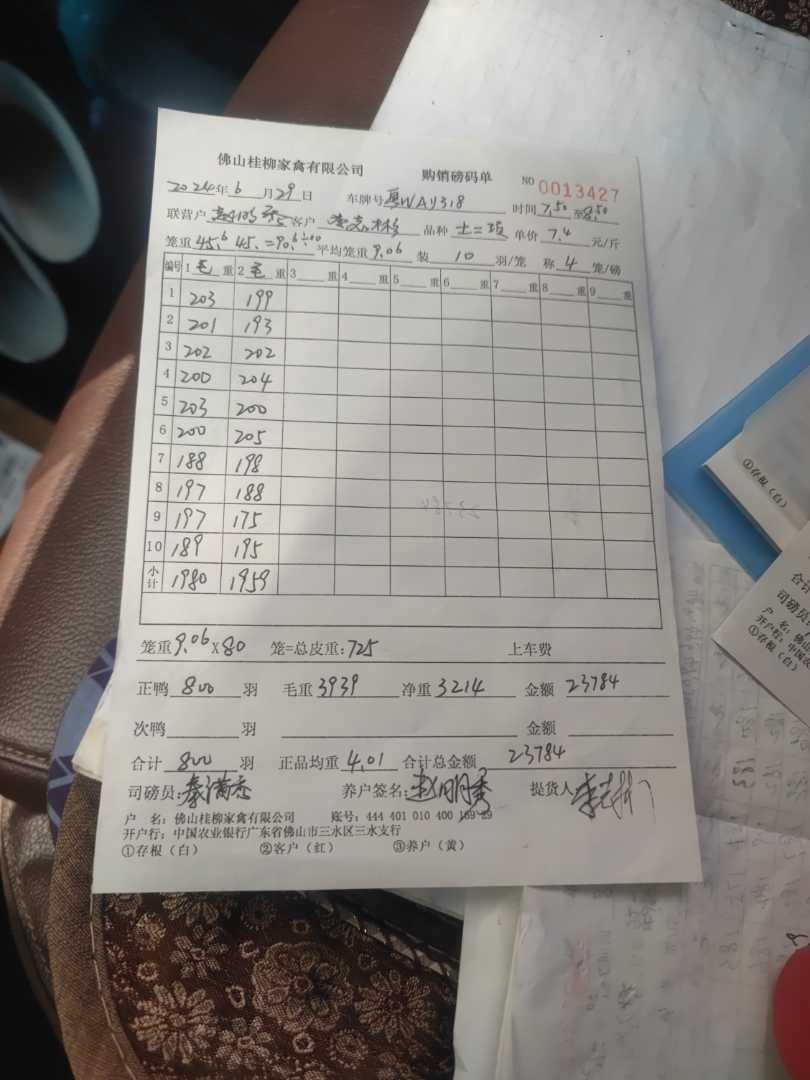 佛山桂柳家禽有限公司 购销磅码单 NO 0013427
2024年6月29日 车牌号 粤WAY318 时间 7.50 至 8.50
联营户 客户 品种 土二 单价 7.4 元/斤
笼重 45.6 45. =90.6÷10 平均笼重 9.06 装 10 羽/笼 称 4 笼/磅
编号 1 毛 重 2 毛 重 3 重 4 重 5 重 6 重 7 重 8 重 9 重
1 203 199
2 201 193
3 202 202
4 200 204
5 203 200
6 200 205
7 188 198
8 197 188
9 197 175
10 189 195
小计 1980 1959
笼重 9.06 X 80 笼=总皮重: 725 上车费
正鸭 800 羽 毛重 3939 净重 3214 金额 23784
次鸭 羽 金额
合计 800 羽 正品均重 4.01 合计总金额 23784
司磅员: 养户签名: 提货人
户 名: 佛山桂柳家禽有限公司 账号: 444 401 010 400 169 29
开户行: 中国农业银行广东省佛山市三水区三水支行
①存根（白） ②客户（红） ③养户（黄）
①存根（白）
合计
司磅员
户 名: 佛山
开户行: 中国
①存根（白）